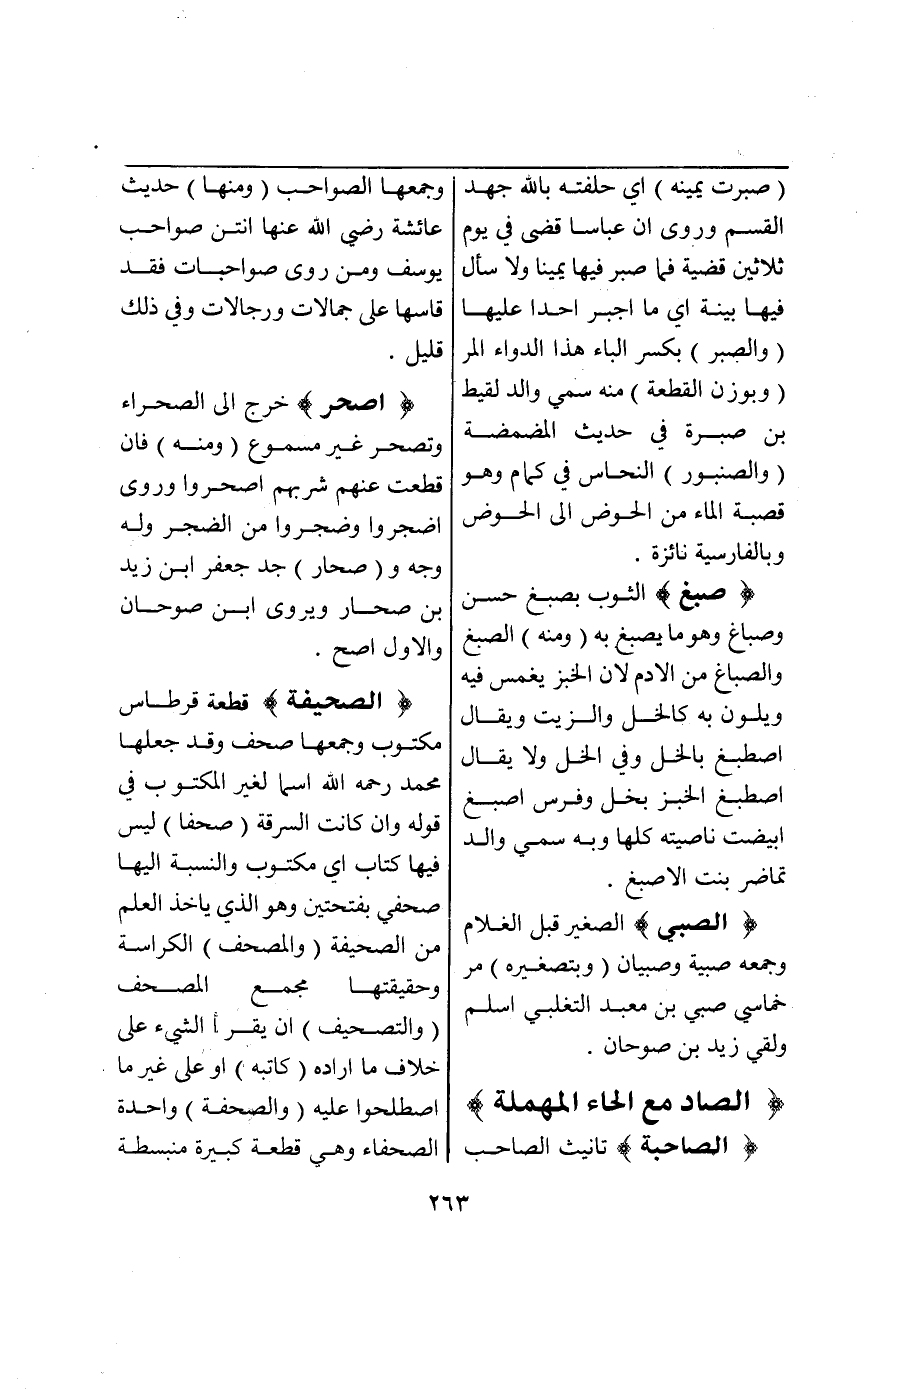 ( صبرت يمينه ) اي حلفته بالله جهد
القسم وروى ان عباسا قضى في يوم
ثلاثين قضية فما صبر فيها يمينا ولا سأل
فيها بينة اي ما اجبر احدا عليها
( والصبر ) بكسر الباء هذا الدواء المر
( وبوزن القطعة ) منه سمي والد لقيط
بن صبرة في حديث المضمضة
( والصنبور ) النحاس في كمام وهو
قصبة الماء من الحوض الى الحوض
وبالفارسية نائزة .
﴿ صبغ ﴾ الثوب بصبغ حسن
وصباغ وهو ما يصبغ به ( ومنه ) الصبغ
والصباغ من الادم لان الخبز يغمس فيه
ويلون به كالخل والزيت ويقال
اصطبغ بالخل وفي الخل ولا يقال
اصطبغ الخبز بخل وفرس اصبغ
ابيضت ناصيته كلها وبه سمي والد
تماضر بنت الاصبغ .
﴿ الصبي ﴾ الصغير قبل الغلام
وجمعه صبية وصبيان ( وبتصغيره ) مر
خماسي صبي بن معبد التغلبي اسلم
ولقي زيد بن صوحان .
﴿ الصاد مع الحاء المهملة ﴾
﴿ الصاحبة ﴾ تانيث الصاحب
وجمعها الصواحب ( ومنها ) حديث
عائشة رضي الله عنها انتن صواحب
يوسف ومن روى صواحبات فقد
قاسها على جمالات ورجالات وفي ذلك
قليل .
﴿ اصحر ﴾ خرج الى الصحراء
وتصحر غير مسموع ( ومنه ) فان
قطعت عنهم شربهم اصحروا وروى
اضجروا وضجروا من الضجر وله
وجه و ( صحار ) جد جعفر ابن زيد
بن صحار ويروى ابن صوحان
والاول اصح .
﴿ الصحيفة ﴾ قطعة قرطاس
مكتوب وجمعها صحف وقد جعلها
محمد رحمه الله اسما لغير المكتوب في
قوله وان كانت السرقة ( صحفا ) ليس
فيها كتاب اي مكتوب والنسبة اليها
صحفي بفتحتين وهو الذي ياخذ العلم
من الصحيفة ( والمصحف ) الكراسة
وحقيقتها مجمع الصحف
( والتصحيف ) ان يقرأ الشيء على
خلاف ما اراده ( كاتبه ) او على غير ما
اصطلحوا عليه ( والصحفة ) واحدة
الصحفاء وهي قطعة كبيرة منبسطة
٢٦٣